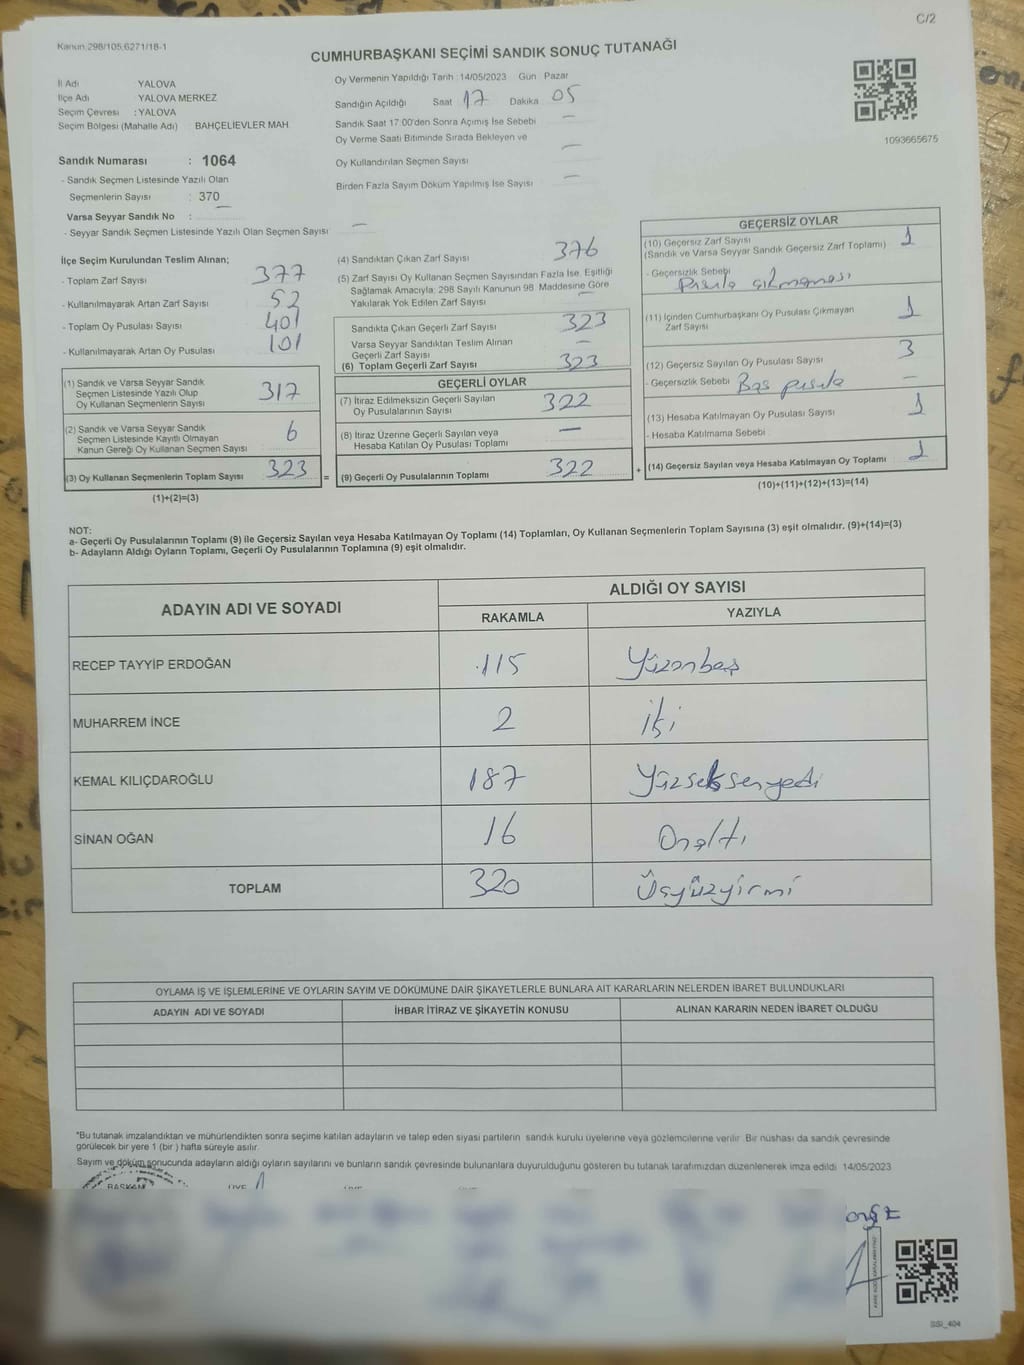 C/2
Kanun:298/105,6271/18-1
CUMHURBAŞKANI SEÇİMİ SANDIK SONUÇ TUTANAĞI
İl Adı YALOVA
İlçe Adı YALOVA MERKEZ
Seçim Çevresi : YALOVA
Seçim Bölgesi (Mahalle Adı) : BAHÇELİEVLER MAH.
Sandık Numarası : 1064
- Sandık Seçmen Listesinde Yazılı Olan
Seçmenlerin Sayısı : 370
Varsa Seyyar Sandık No : —
- Seyyar Sandık Seçmen Listesinde Yazılı Olan Seçmen Sayısı —
Oy Vermenin Yapıldığı Tarih : 14/05/2023 Gün Pazar
Sandığın Açıldığı Saat 17 Dakika 05
Sandık Saat 17:00'den Sonra Açımış İse Sebebi —
Oy Verme Saati Bitiminde Sırada Bekleyen ve
Oy Kullandırılan Seçmen Sayısı —
Birden Fazla Sayım Döküm Yapılmış İse Sayısı —
1093665675
İlçe Seçim Kurulundan Teslim Alınan;
- Toplam Zarf Sayısı 377
- Kullanılmayarak Artan Zarf Sayısı 52
- Toplam Oy Pusulası Sayısı 401
- Kullanılmayarak Artan Oy Pusulası 101
(1) Sandık ve Varsa Seyyar Sandık
Seçmen Listesinde Yazılı Olup
Oy Kullanan Seçmenlerin Sayısı 317
(2) Sandık ve Varsa Seyyar Sandık
Seçmen Listesinde Kayıtlı Olmayan
Kanun Gereği Oy Kullanan Seçmen Sayısı 6
(3) Oy Kullanan Seçmenlerin Toplam Sayısı 323 =
(1)+(2)=(3)
(4) Sandıktan Çıkan Zarf Sayısı 376
(5) Zarf Sayısı Oy Kullanan Seçmen Sayısından Fazla İse, Eşitliği
Sağlamak Amacıyla; 298 Sayılı Kanunun 98. Maddesine Göre
Yakılarak Yok Edilen Zarf Sayısı —
Sandıkta Çıkan Geçerli Zarf Sayısı 323
Varsa Seyyar Sandıktan Teslim Alınan
Geçerli Zarf Sayısı —
(6) Toplam Geçerli Zarf Sayısı 323
GEÇERLİ OYLAR
(7) İtiraz Edilmeksizin Geçerli Sayılan
Oy Pusulalarının Sayısı 322
(8) İtiraz Üzerine Geçerli Sayılan veya
Hesaba Katılan Oy Pusulası Toplamı —
(9) Geçerli Oy Pusulalarının Toplamı 322 +
GEÇERSİZ OYLAR
(10) Geçersiz Zarf Sayısı
(Sandık ve Varsa Seyyar Sandık Geçersiz Zarf Toplamı) 1
- Geçersizlik Sebebi Pusula çıkmaması
(11) İçinden Cumhurbaşkanı Oy Pusulası Çıkmayan
Zarf Sayısı 1
(12) Geçersiz Sayılan Oy Pusulası Sayısı 3
- Geçersizlik Sebebi Boş pusula —
(13) Hesaba Katılmayan Oy Pusulası Sayısı 1
- Hesaba Katılmama Sebebi
(14) Geçersiz Sayılan veya Hesaba Katılmayan Oy Toplamı 1
(10)+(11)+(12)+(13)=(14)
NOT:
a- Geçerli Oy Pusulalarının Toplamı (9) ile Geçersiz Sayılan veya Hesaba Katılmayan Oy Toplamı (14) Toplamları, Oy Kullanan Seçmenlerin Toplam Sayısına (3) eşit olmalıdır. (9)+(14)=(3)
b- Adayların Aldığı Oyların Toplamı, Geçerli Oy Pusulalarının Toplamına (9) eşit olmalıdır.
ADAYIN ADI VE SOYADI ALDIĞI OY SAYISI
RAKAMLA YAZIYLA
RECEP TAYYİP ERDOĞAN 115 Yüzonbeş
MUHARREM İNCE 2 İki
KEMAL KILIÇDAROĞLU 187 Yüzseksenyedi
SİNAN OĞAN 16 Onaltı
TOPLAM 320 Üçyüzyirmi
OYLAMA İŞ VE İŞLEMLERİNE VE OYLARIN SAYIM VE DÖKÜMÜNE DAİR ŞİKAYETLERLE BUNLARA AİT KARARLARIN NELERDEN İBARET BULUNDUKLARI
ADAYIN ADI VE SOYADI İHBAR İTİRAZ VE ŞİKAYETİN KONUSU ALINAN KARARIN NEDEN İBARET OLDUĞU
*Bu tutanak imzalandıktan ve mühürlendikten sonra seçime katılan adayların ve talep eden siyasi partilerin sandık kurulu üyelerine veya gözlemcilerine verilir. Bir nüshası da sandık çevresinde
görülecek bir yere 1 (bir ) hafta süreyle asılır.
Sayım ve döküm sonucunda adayların aldığı oyların sayılarını ve bunların sandık çevresinde bulunanlara duyurulduğunu gösteren bu tutanak tarafımızdan düzenlenerek imza edildi. 14/05/2023
BAŞKAN
SSİ_404